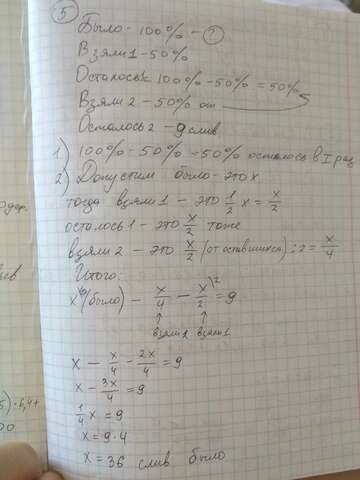 5
Было - 100% - ?
Взяли 1 - 50%
Осталось 1: 100% - 50% = 50%
Взяли 2 - 50% от
Осталось 2 - 9 слив
1) 100% - 50% = 50% осталось в I раз
2) Допустим было - это x
тогда взяли 1 - это 1/2 x = x/2
осталось 1 - это x/2 тоже
взяли 2 - это x/2 (от оставшихся) : 2 = x/4
Итого:
x (было) - x/4 - x/2 \2 = 9
взяли 2 взяли 1
x - x/4 - 2x/4 = 9
x - 3x/4 = 9
1/4 x = 9
x = 9·4
x = 36 слив было
5) · 6,4 +
00